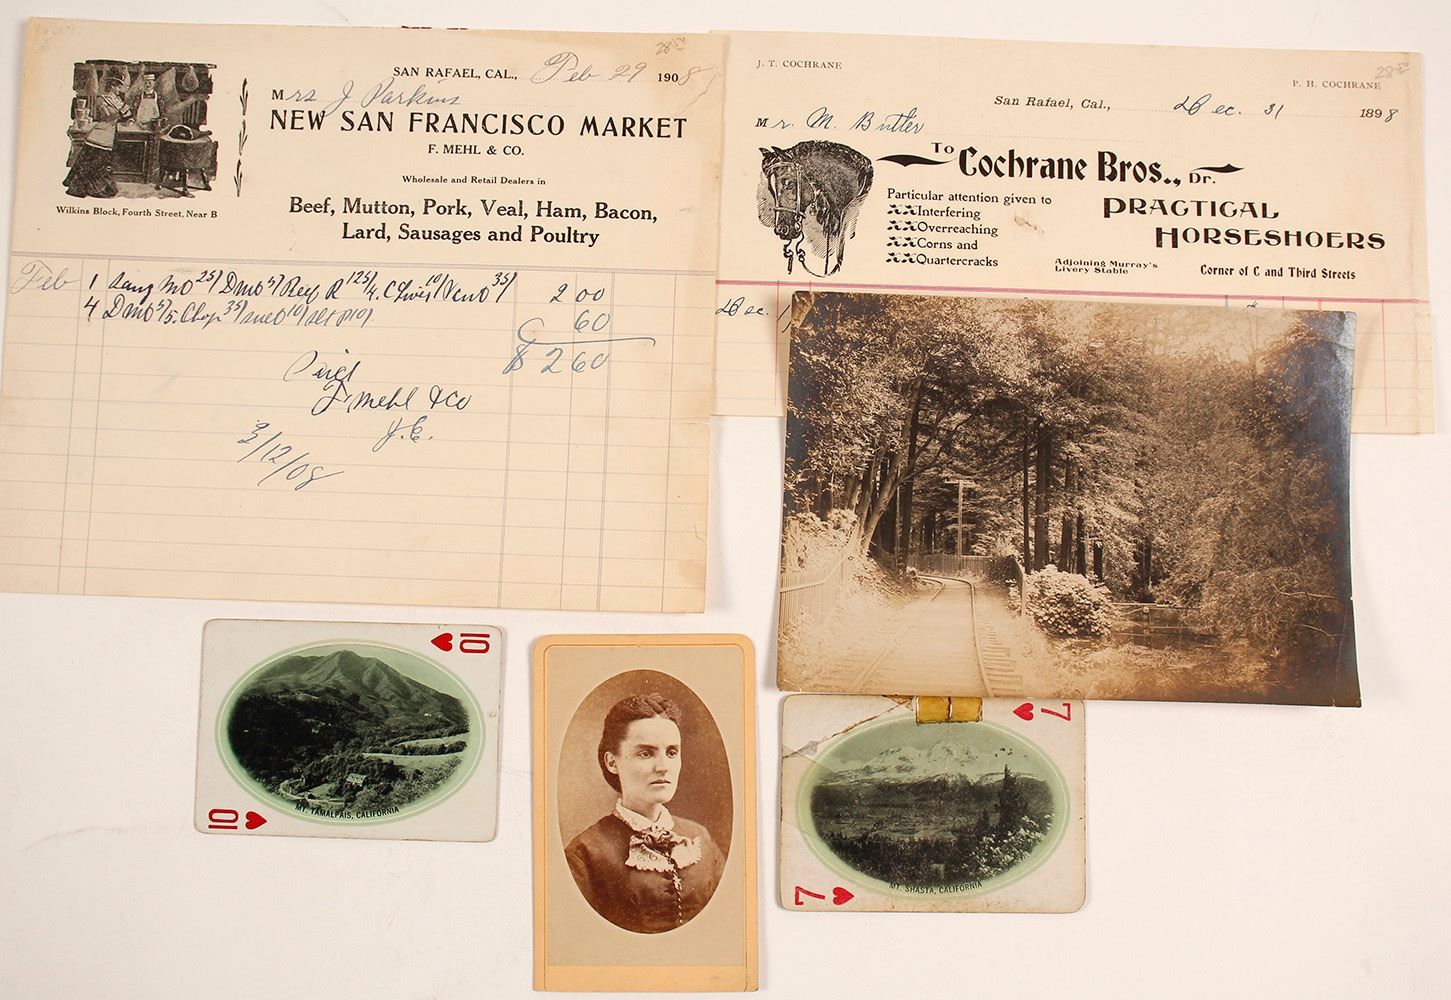 28.50
SAN RAFAEL, CAL., Feb 29 1908
Mrs J Parkins
NEW SAN FRANCISCO MARKET
F. MEHL & CO.
Wholesale and Retail Dealers in
Beef, Mutton, Pork, Veal, Ham, Bacon,
Lard, Sausages and Poultry
Wilkins Block, Fourth Street, Near B
Feb 1 25/ Beef R 125/ 10/ 35/ 2 00
4 Chop 35/ 10/ 60
$ 2 60
F Mehl & Co
J.E.
3/12/08
J. T. COCHRANE
28.50
P. H. COCHRANE
San Rafael, Cal., Dec. 31 1898
Mr. M. Butler
To Cochrane Bros., Dr.
Particular attention given to
Interfering
Overreaching
Corns and
Quartercracks
PRACTICAL
HORSESHOERS
Adjoining Murray's
Livery Stable
Corner of C and Third Streets
Dec. 1
10
MT. TAMALPAIS, CALIFORNIA
10
7
MT. SHASTA, CALIFORNIA
7